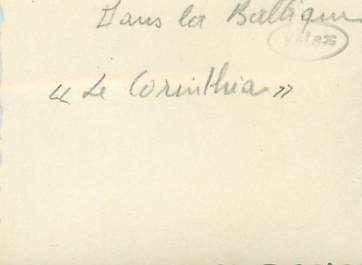 Dans la Baltique
« Le Corinthia »